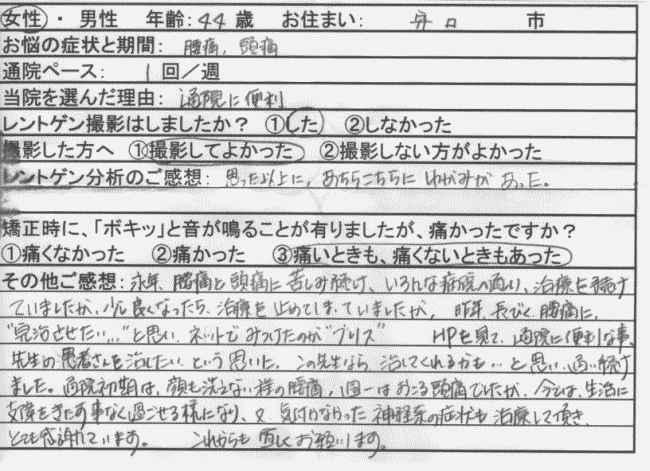 女性 ・ 男性 年齢:44歳 お住まい: 守口 市
お悩の症状と期間: 腰痛、頭痛
通院ペース: 1 回/週
当院を選んだ理由: 通院に便利
レントゲン撮影はしましたか? ①した ②しなかった
撮影した方へ ①撮影してよかった ②撮影しない方がよかった
レントゲン分析のご感想: 思った以上に、あちらこちらに ゆがみが あった。
矯正時に、「ボキッ」と音が鳴ることが有りましたが、痛かったですか?
①痛くなかった ②痛かった ③痛いときも、痛くないときもあった
その他ご感想: 永年、腰痛と頭痛に苦しみ続け、いろんな病院へ通い、治療を続け
ていましたが、少し良くなったら、治療を止めてしまっていましたが、昨年、長びく、腰痛に、
"完治させたい…"と思い、ネットでみつけたのが"ブリス" HPを見て、通院に便利な事、
先生の患者さんを治したい、という思いに、この先生なら、治してくれるかも…と思い、通い続け
ました。通院初期は、顔も洗えない様の腰痛、週一はおこる頭痛でしたが、今では、生活に
支障をきたす事なく過ごせる様になり、又、気付かなかった神経系の症状も治療して頂き、
とても感謝しています。 これからも宜しくお願いします。